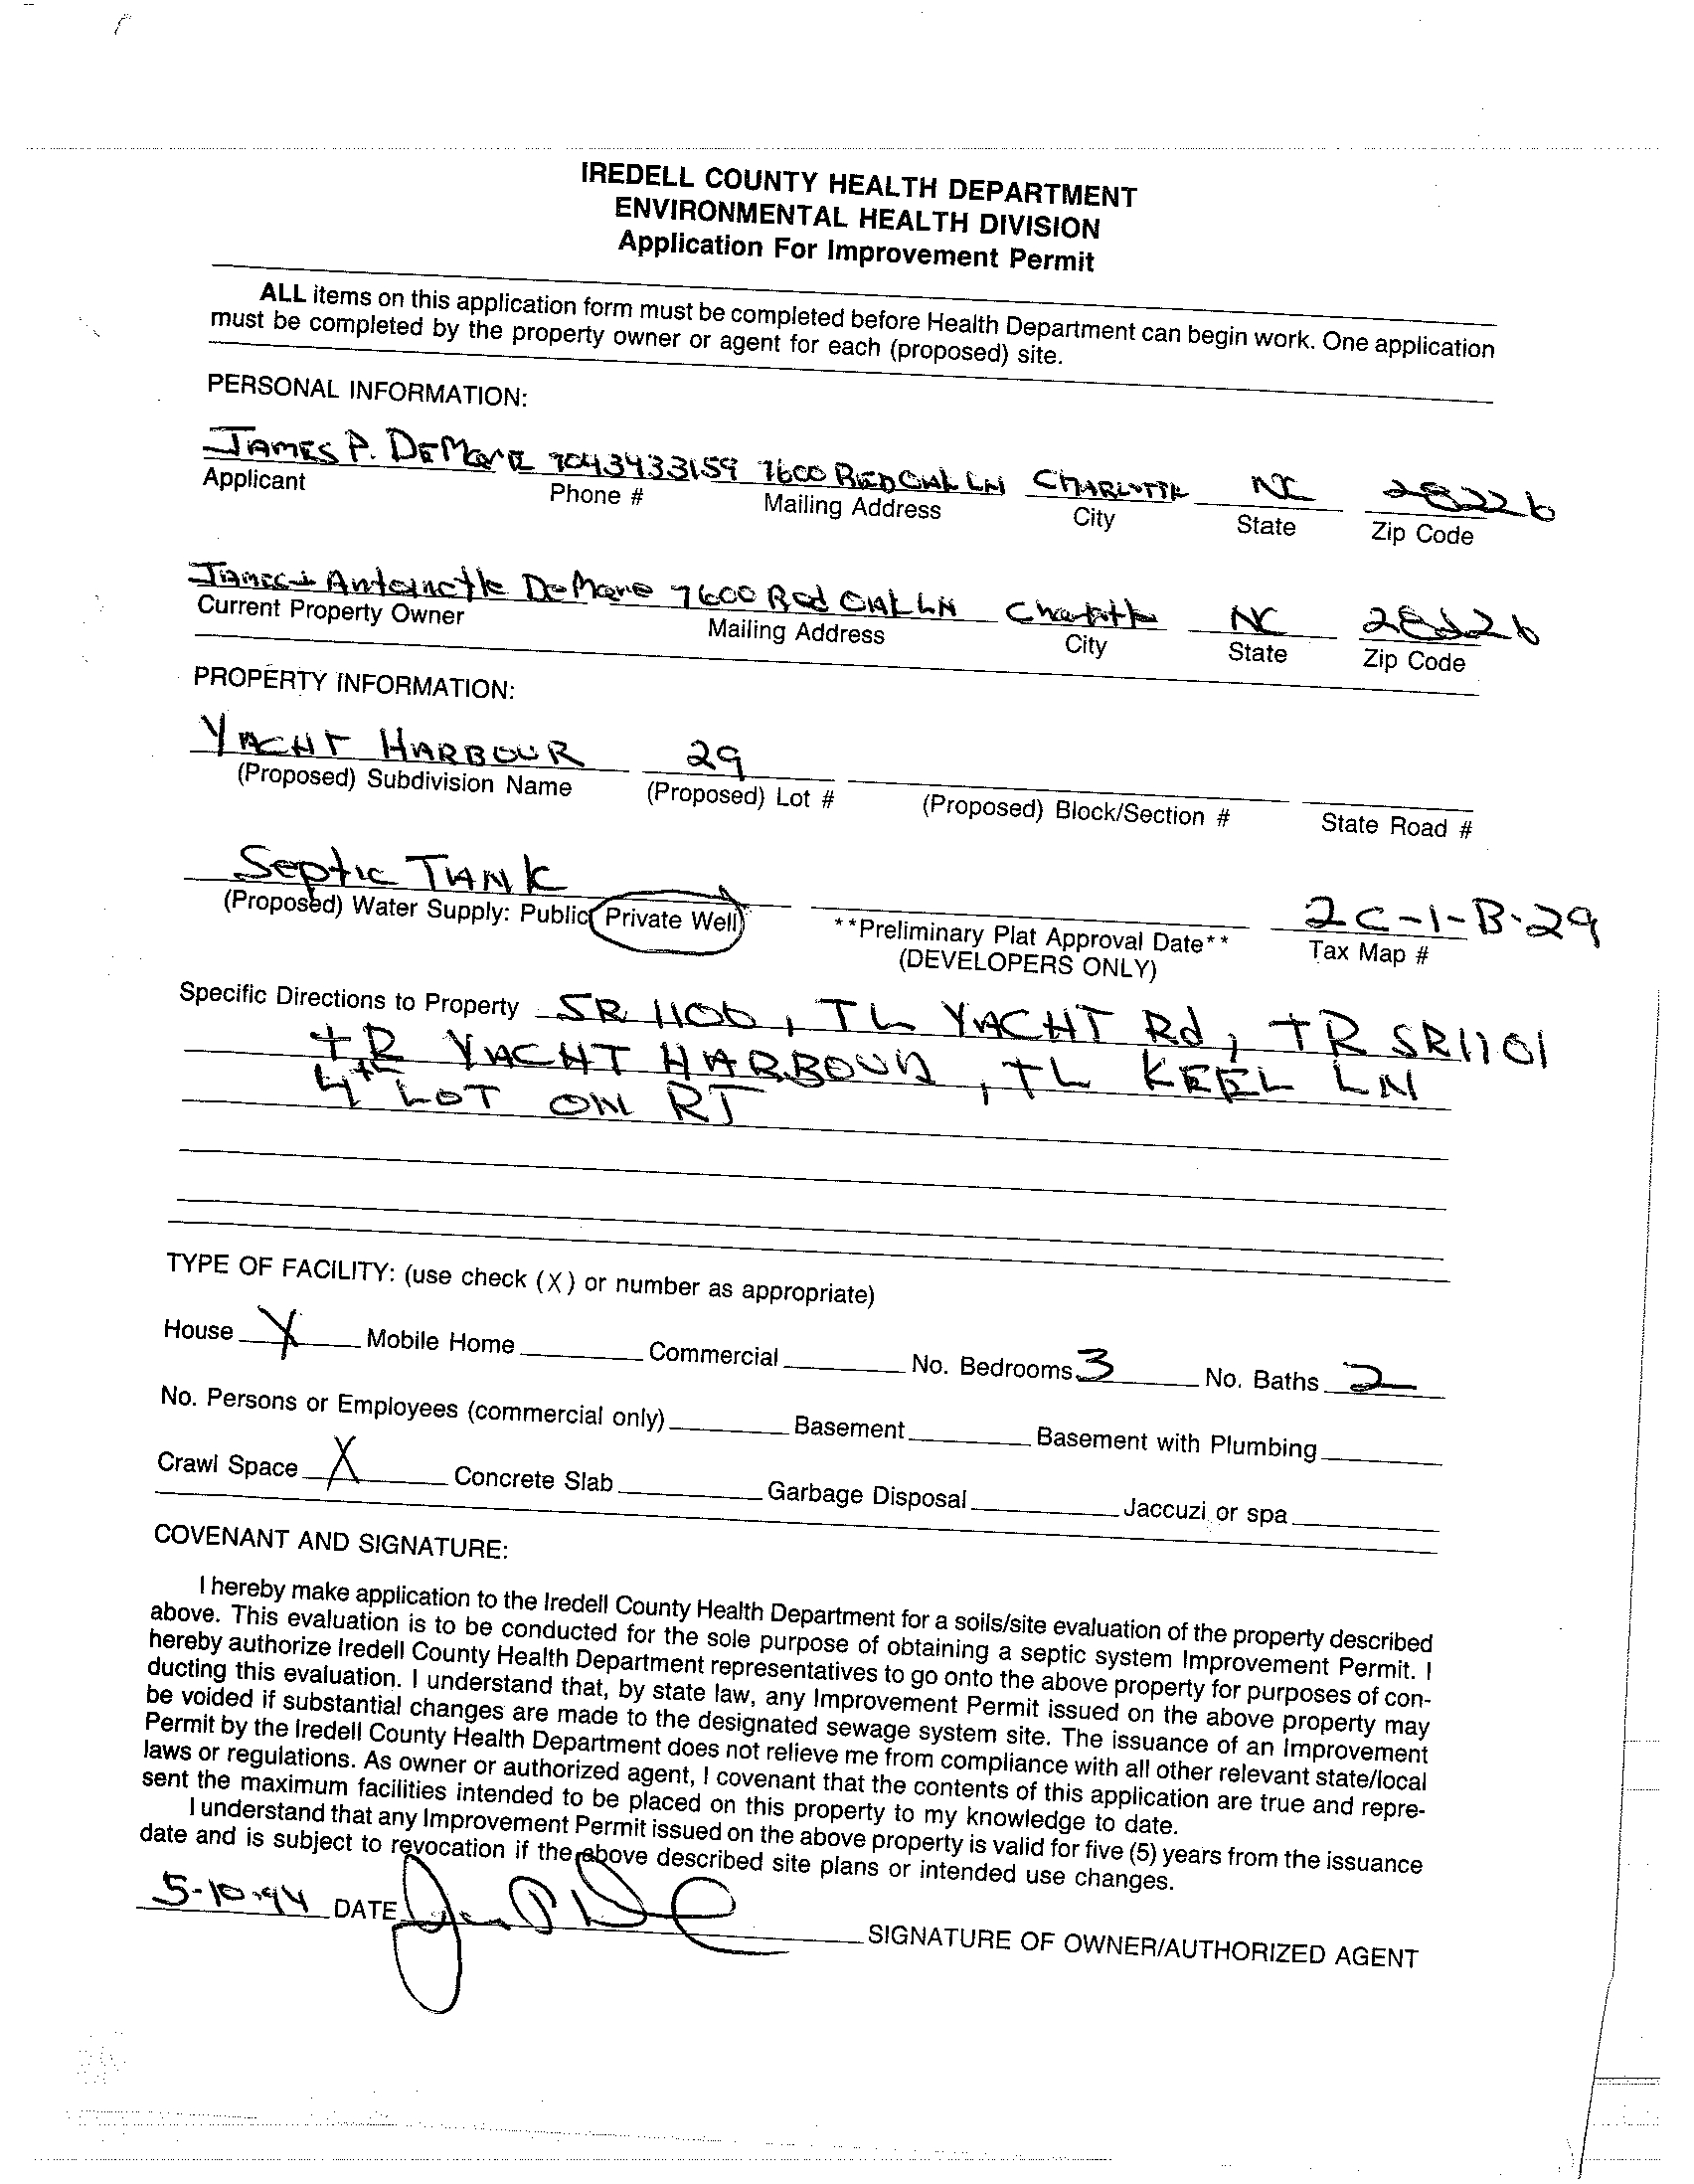 IREDELL COUNTY HEALTH DEPARTMENT
ENVIRONMENTAL HEALTH DIVISION
Application For Improvement Permit
ALL items on this application form must be completed before Health Department can begin work. One application
must be completed by the property owner or agent for each (proposed) site.
PERSONAL INFORMATION:
JAMES P. 7043433159 7600 RED OAK LN CHARLOTTE NC 28226
Applicant Phone # Mailing Address City State Zip Code
James + Antoinette DeMare 7600 Red OAK LN Charlotte NC 28226
Current Property Owner Mailing Address City State Zip Code
PROPERTY INFORMATION:
YACHT HARBOUR 29
(Proposed) Subdivision Name (Proposed) Lot # (Proposed) Block/Section # State Road #
Septic TANK 2C-1-B-29
(Proposed) Water Supply: Public Private Well **Preliminary Plat Approval Date** Tax Map #
(DEVELOPERS ONLY)
Specific Directions to Property SR 1100, TL YACHT Rd, TR SR1101
TR YACHT HARBOUR, TL KEEL LN
4th LOT ON RT
TYPE OF FACILITY: (use check (X) or number as appropriate)
House X Mobile Home Commercial No. Bedrooms 3 No. Baths 2
No. Persons or Employees (commercial only) Basement Basement with Plumbing
Crawl Space X Concrete Slab Garbage Disposal Jaccuzi or spa
COVENANT AND SIGNATURE:
I hereby make application to the Iredell County Health Department for a soils/site evaluation of the property described
above. This evaluation is to be conducted for the sole purpose of obtaining a septic system Improvement Permit. I
hereby authorize Iredell County Health Department representatives to go onto the above property for purposes of con-
ducting this evaluation. I understand that, by state law, any Improvement Permit issued on the above property may
be voided if substantial changes are made to the designated sewage system site. The issuance of an Improvement
Permit by the Iredell County Health Department does not relieve me from compliance with all other relevant state/local
laws or regulations. As owner or authorized agent, I covenant that the contents of this application are true and repre-
sent the maximum facilities intended to be placed on this property to my knowledge to date.
I understand that any Improvement Permit issued on the above property is valid for five (5) years from the issuance
date and is subject to revocation if the above described site plans or intended use changes.
5-10-94 DATE SIGNATURE OF OWNER/AUTHORIZED AGENT